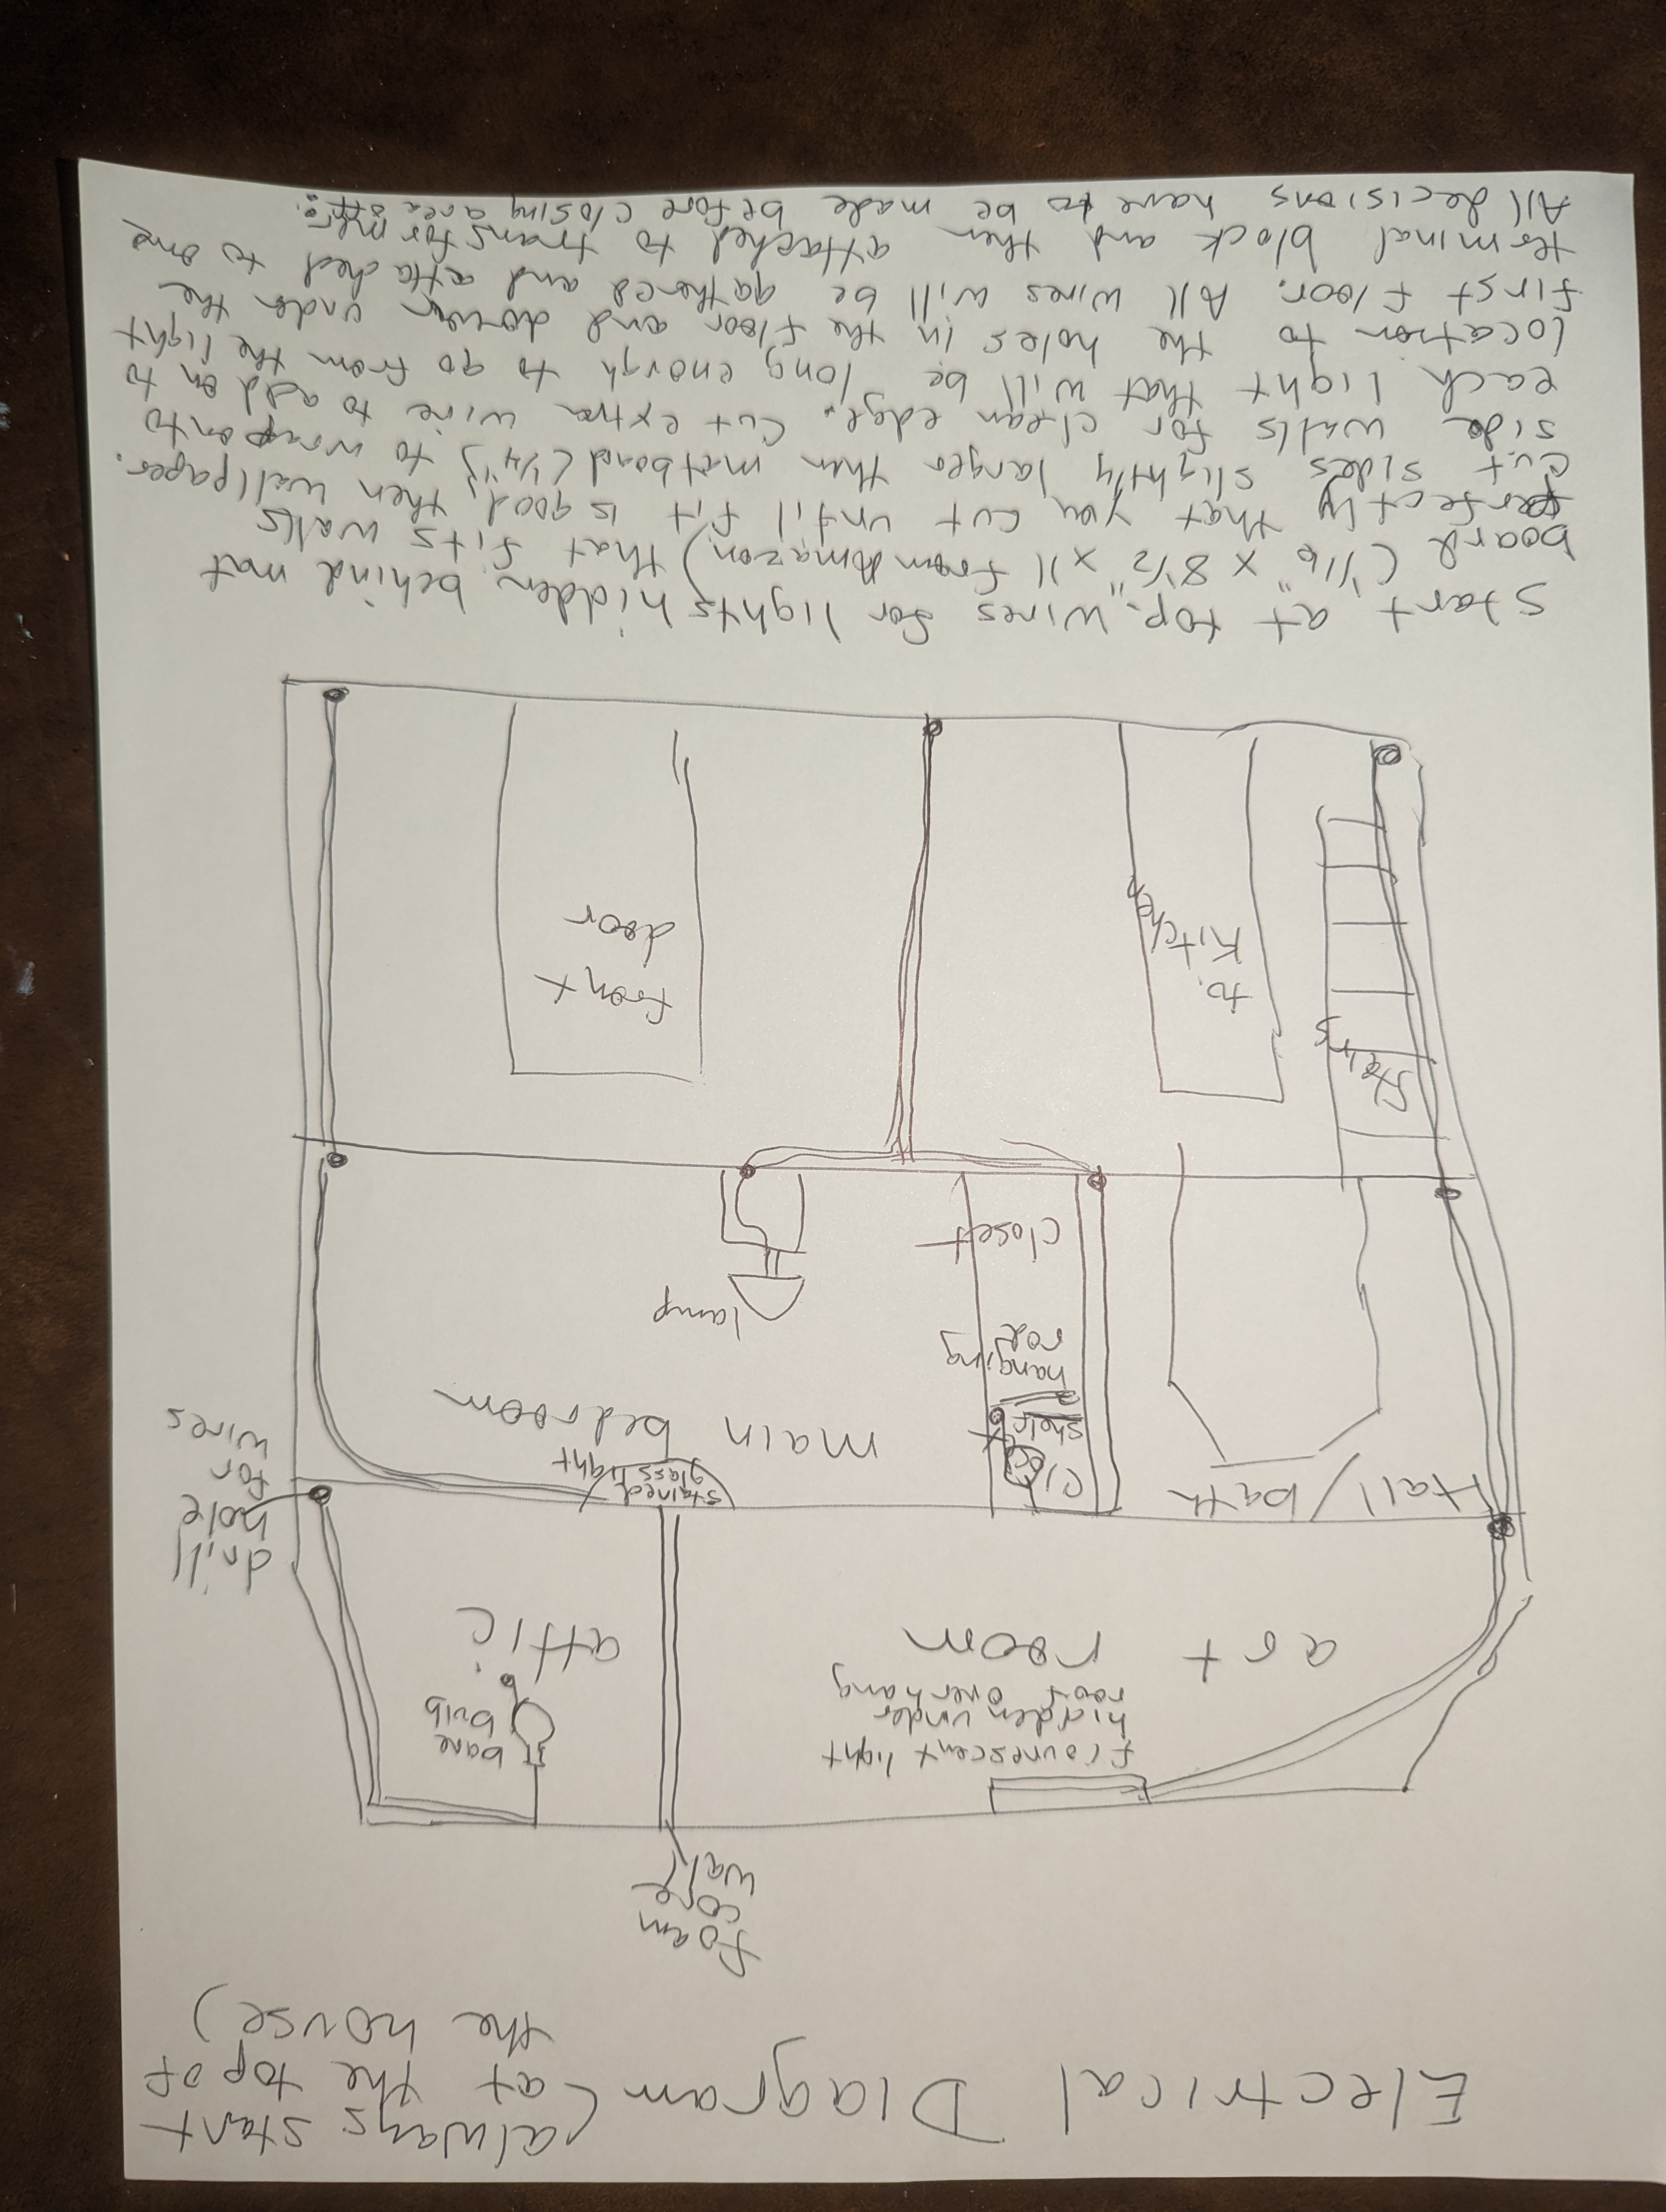 Electrical Diagram (always start
at the top of
the house)
foam
core
wall
flourescent light
hidden under
roof overhang
bare
bulb
art room
attic
drill
hole
for
wires
Hall/bath
stained
glass light
main bedroom
shelf
hanging
rod
lamp
closet
Stairs
to
kitchen
front
door
Start at top. Wires for lights hidden behind mat
board (1/16" x 8 1/2" x 11 from Amazon) that fits walls
perfectly that you cut until fit is good, then wallpaper.
Cut sides slightly larger then matboard (1/4") to wrap onto
side walls for clean edge. Cut extra wire to add on to
each light that will be long enough to go from the light
location to the holes in the floor and down under the
first floor. All wires will be gathered and attached to one
terminal block and then attached to transformer.
All decisions have to be made before closing area off.